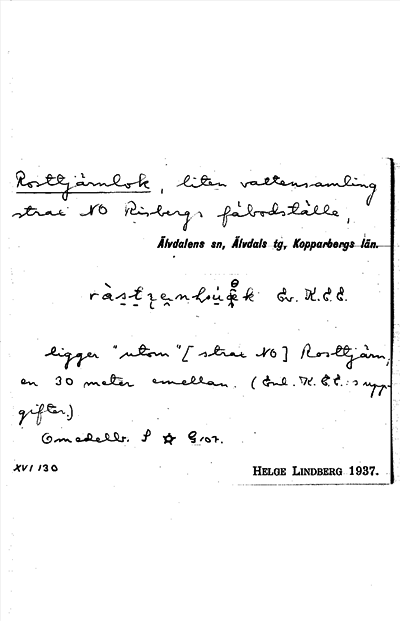 Rosttjärnlok, liten vattensamling
strax NO Risbergs fäbodställe,
Älvdalens sn, Älvdals tg, Kopparbergs län.
Ev. K.E.E.
ligger "utom" [strax NO] Rosttjärn,
en 30 meter emellan. (Enl. K.E.E:s upp-
gifter.)
Omedelb. S
XVI 130
HELGE LINDBERG 1937.